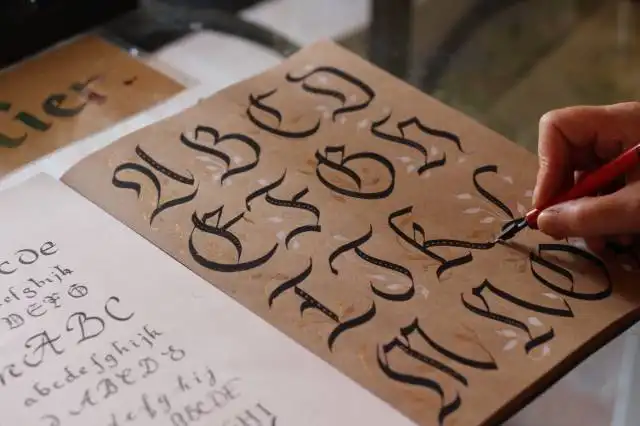 tier
A B C D
E F G H
I J K L
M N O
CDE
efghijk
DEFG
ABC
abcdefghijk
ABCD
efghij
ABCDE